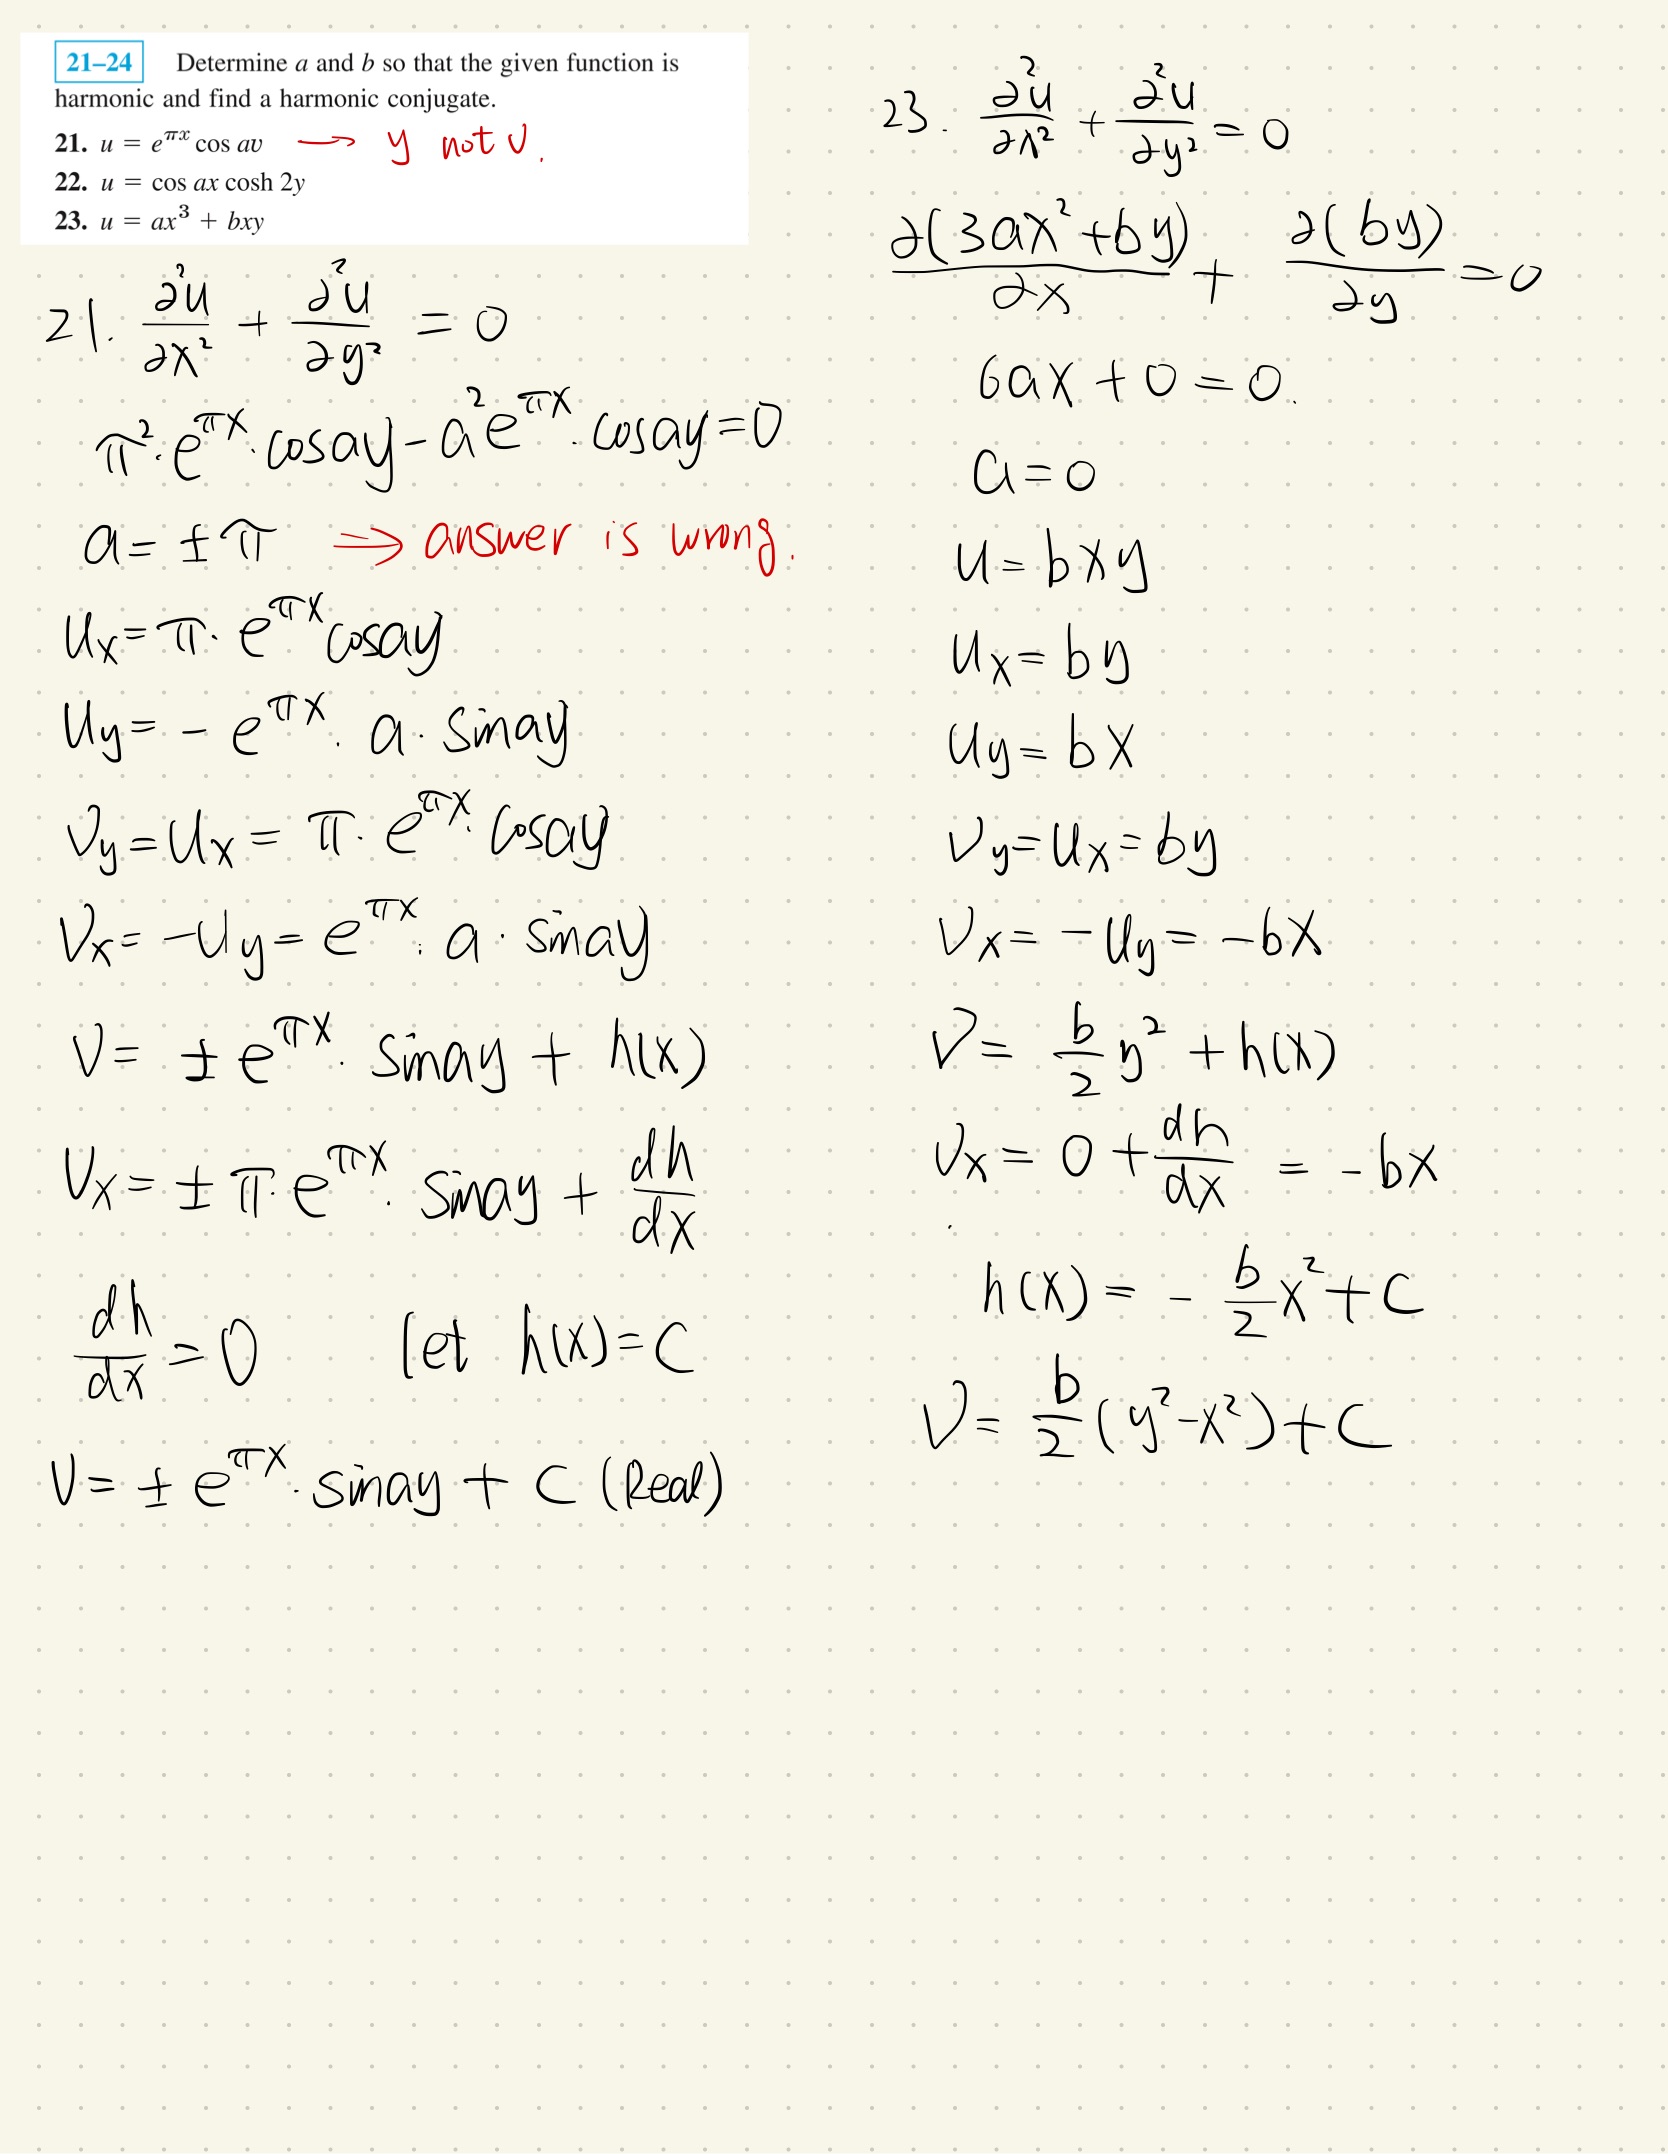 21–24 Determine a and b so that the given function is
harmonic and find a harmonic conjugate.
21. u = e^{πx} cos av → y not v.
22. u = cos ax cosh 2y
23. u = ax³ + bxy
21. ∂²u/∂x² + ∂²u/∂y² = 0
π²·e^{πx}·cosay − a²e^{πx}·cosay = 0
a = ±π ⇒ answer is wrong.
Ux = π·e^{πx}cosay
Uy = − e^{πx}·a·sinay
Vy = Ux = π·e^{πx}·cosay
Vx = −Uy = e^{πx}·a·sinay
V = ± e^{πx}·sinay + h(x)
Vx = ± π·e^{πx}·sinay + dh/dx
dh/dx = 0 let h(x) = C
V = ± e^{πx}·sinay + C (Real)
23. ∂²u/∂x² + ∂²u/∂y² = 0
∂(3ax²+by)/∂x + ∂(by)/∂y = 0
6ax + 0 = 0.
a = 0
u = bxy
Ux = by
Uy = bx
Vy = Ux = by
Vx = −Uy = −bx
V = b/2 y² + h(x)
Vx = 0 + dh/dx = −bx
h(x) = − b/2 x² + C
V = b/2 (y²−x²) + C